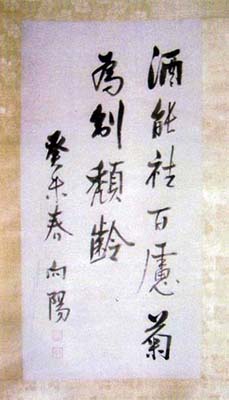 酒能祛百慮菊
為制頹齡
癸未春向陽